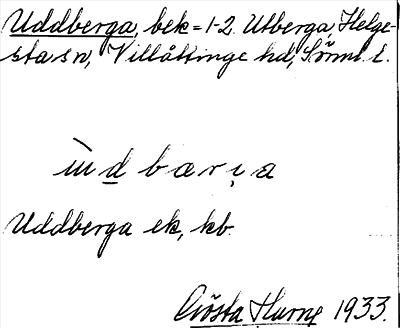 Uddberga, bek = 1-2 Utberga, Helge-
sta sn, Villåttinge hd, Söml. l.
ùdbæṛa
Uddberga ek, kb.
Gösta Harne 1933.